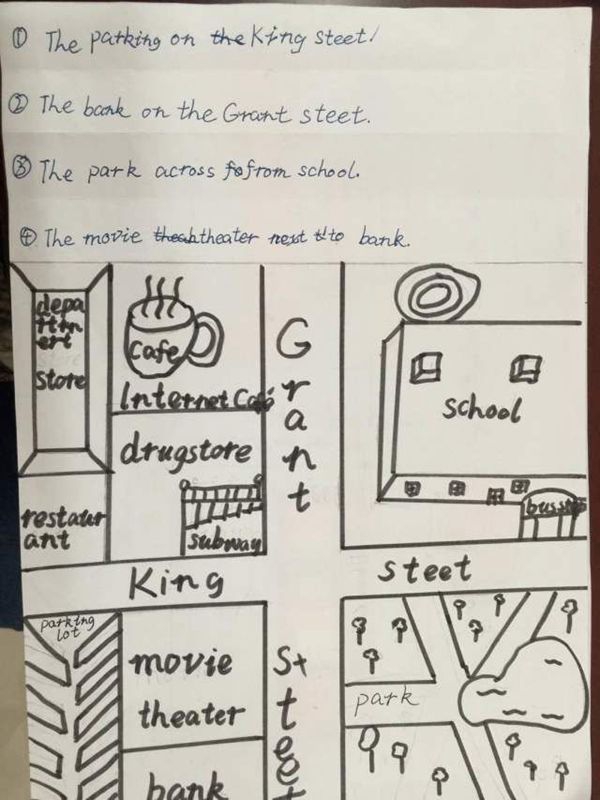 ① The parking on the King steet!
② The bank on the Grant steet.
③ The park across fofrom school.
④ The movie theahtheater next tto bank.
depa
rtm
ent
store
Cafe
Internet Café
drugstore
subway
restaur
ant
Grant
school
bus stop
King steet
parking
lot
movie
theater
bank
Steet
park